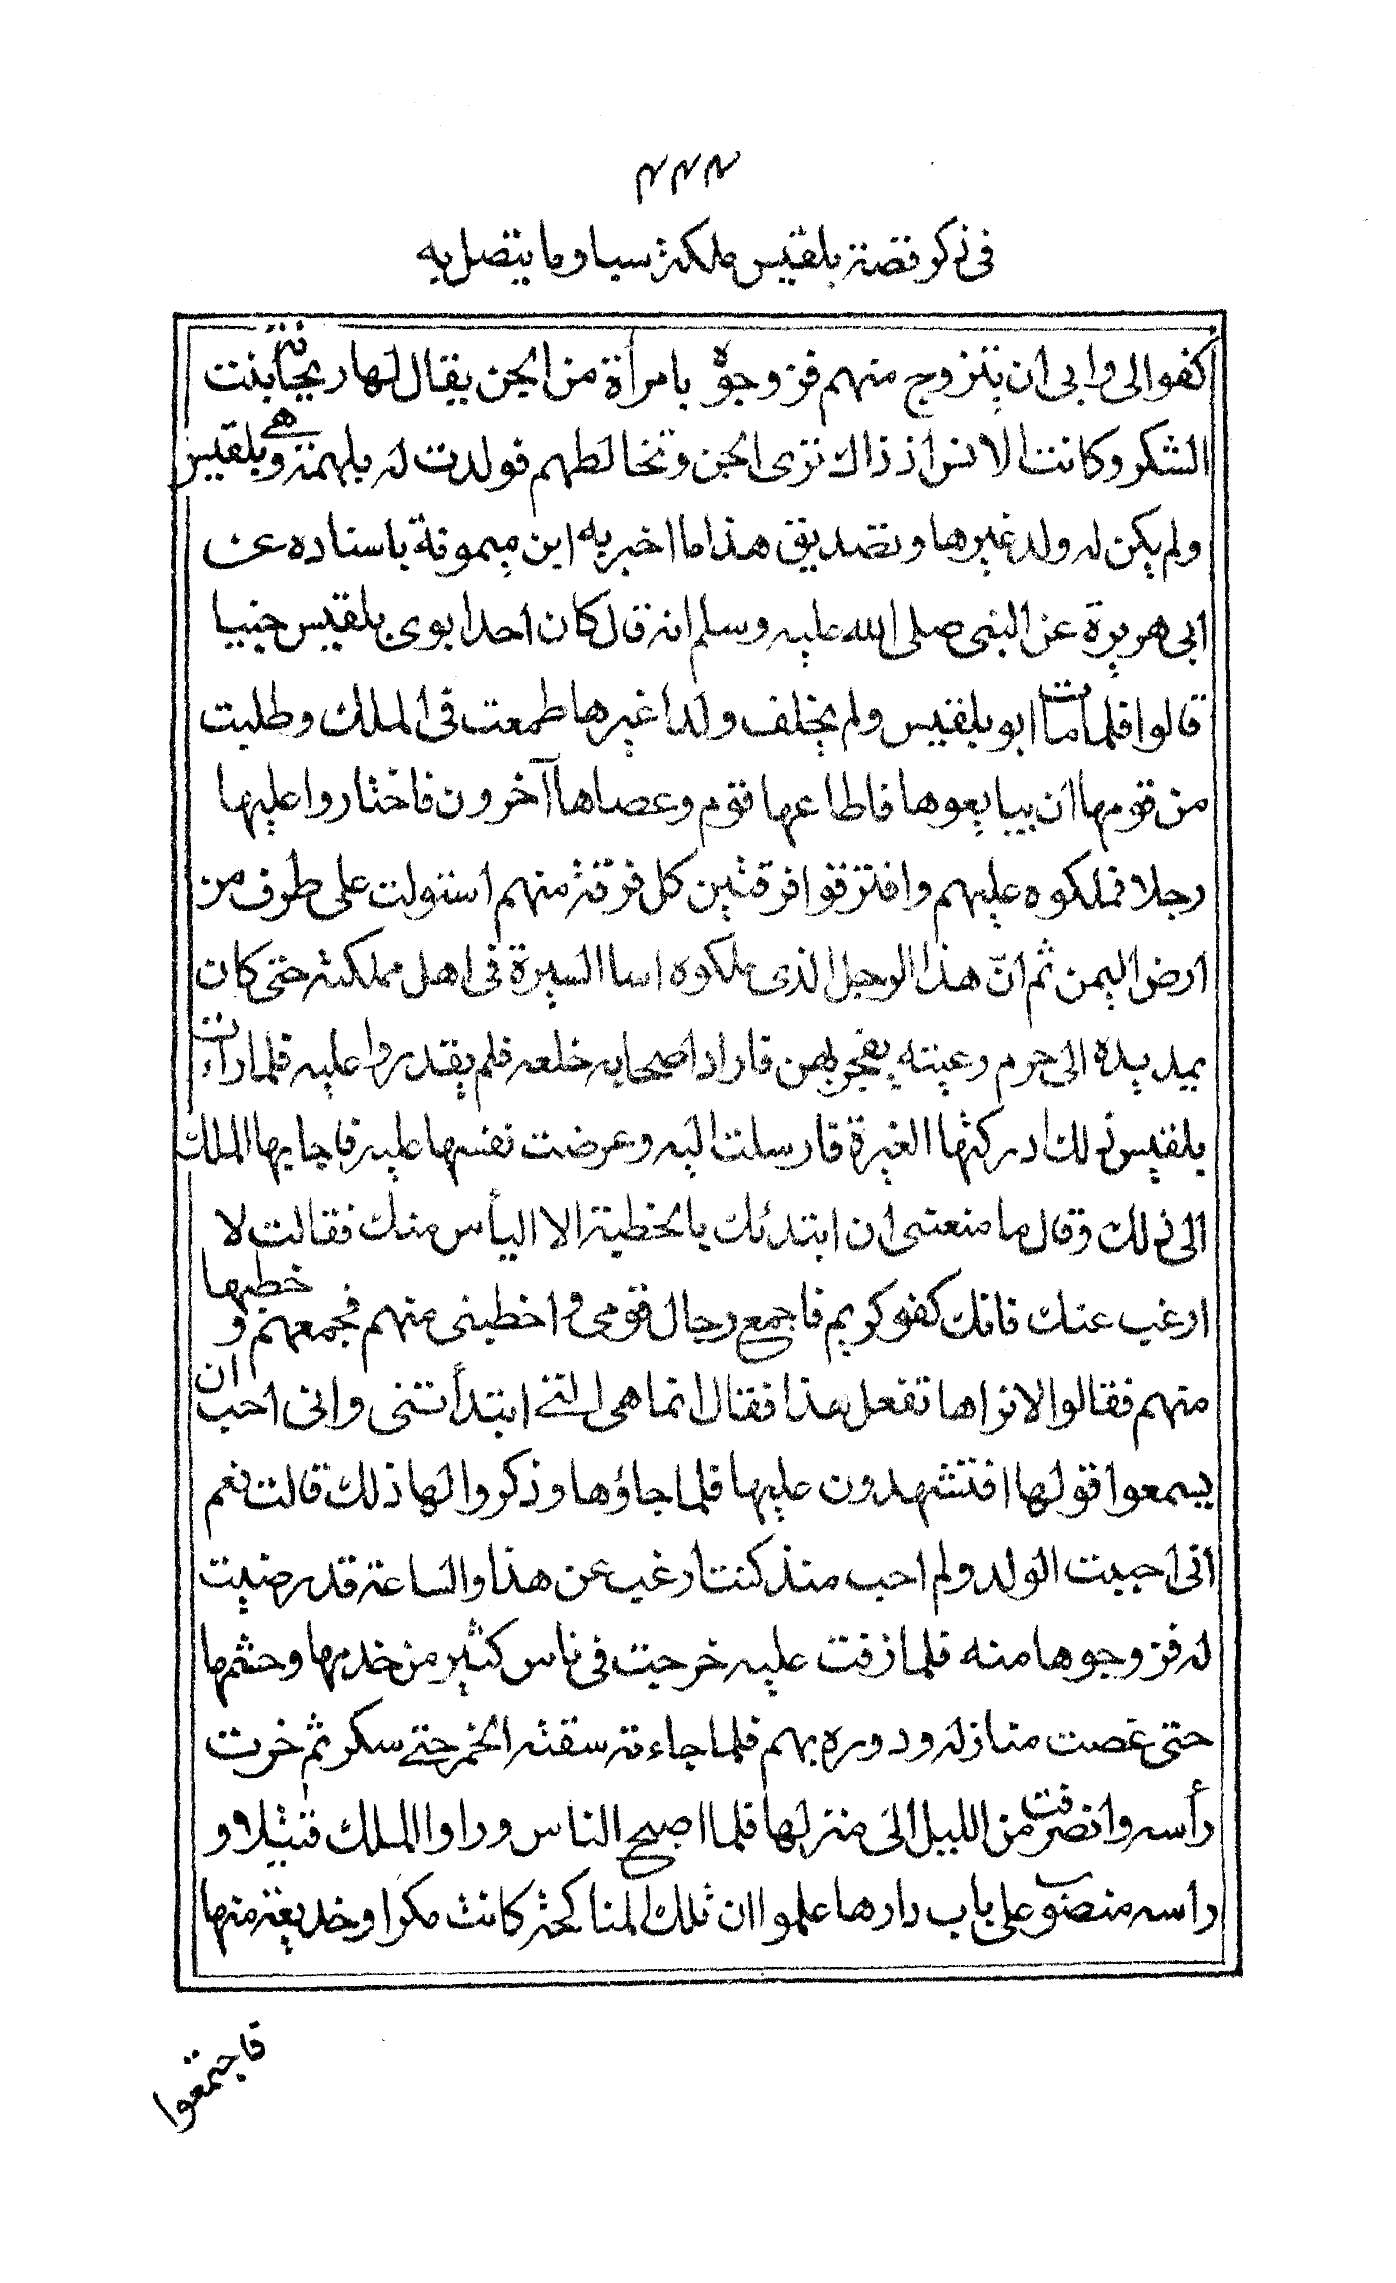 ٣٣٣
في ذكر قصة بلقيس ملكة سبا وما يتصل به
كفوا لي وابى ان يتزوج منهم فزوجوه بامرأة من الجن يقال لها ريحانة بنت
الشكر وكانت الانس اذ ذاك ترى الجن وتخالطهم فولدت له بلهمة وهي بلقيس
ولم يكن له ولد غيرها وتصديق هذا ما اخبر به ابن ميمونة باسناده عن
ابي هريرة عن النبي صلى الله عليه وسلم انه قال كان احد ابوي بلقيس جنيا
قالوا فلما مات ابو بلقيس ولم يخلف ولدا غيرها طمعت في الملك وطلبت
من قومها ان يبايعوها فاطاعها قوم وعصاها آخرون فاختاروا عليها
رجلا فملكوه عليهم وافترقوا فرقتين كل فرقة منهم استولت على طرف من
ارض اليمن ثم انّ هذا الرجل الذي ملكوه اسا السيرة في اهل مملكته حتى كان
يمد يده الى حرم رعيته يفجر بهن فاراد اصحابه خلعه فلم يقدروا عليه فلما رات
بلقيس ذلك ادركتها الغيرة فارسلت اليه وعرضت نفسها عليه فاجابها الملك
الى ذلك وقال ما منعني ان ابتدئك بالخطبة الا اليأس منك فقالت لا
ارغب عنك فانك كفو كريم فاجمع رجال قومي واخطبني منهم فجمعهم وخطبها
منهم فقالوا لا نراها تفعل هذا فقال انما هي التي ابتدأتني واني احب ان
يسمعوا قولها افتشهدون عليها فلما جاؤها وذكروا لها ذلك قالت نعم
اني احببت الولد ولم احب منذ كنت ارغب عن هذا والساعة قد رضيت
له فزوجوها منه فلما زفت عليه خرجت في ناس كثير من خدمها وحشمها
حتى غصت منازله ودوره بهم فلما جاءته سقته الخمر حتى سكر ثم خرت
رأسه وانصرفت من الليل الى منزلها فلما اصبح الناس وراوا الملك قتيلا و
راسه منصوب على باب دارها علموا ان تلك المناكحة كانت مكرا وخديعة منها
فاجتمعوا